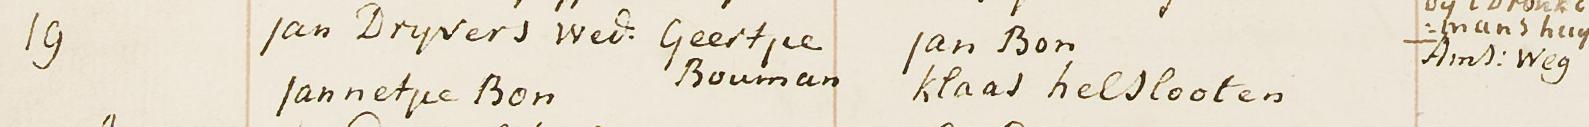 19 Jan Dryvers Wed: Geertje Jan Bon
Bouman
Jannetje Bon Klaas helslooten
:mans huy
Ams: Weg